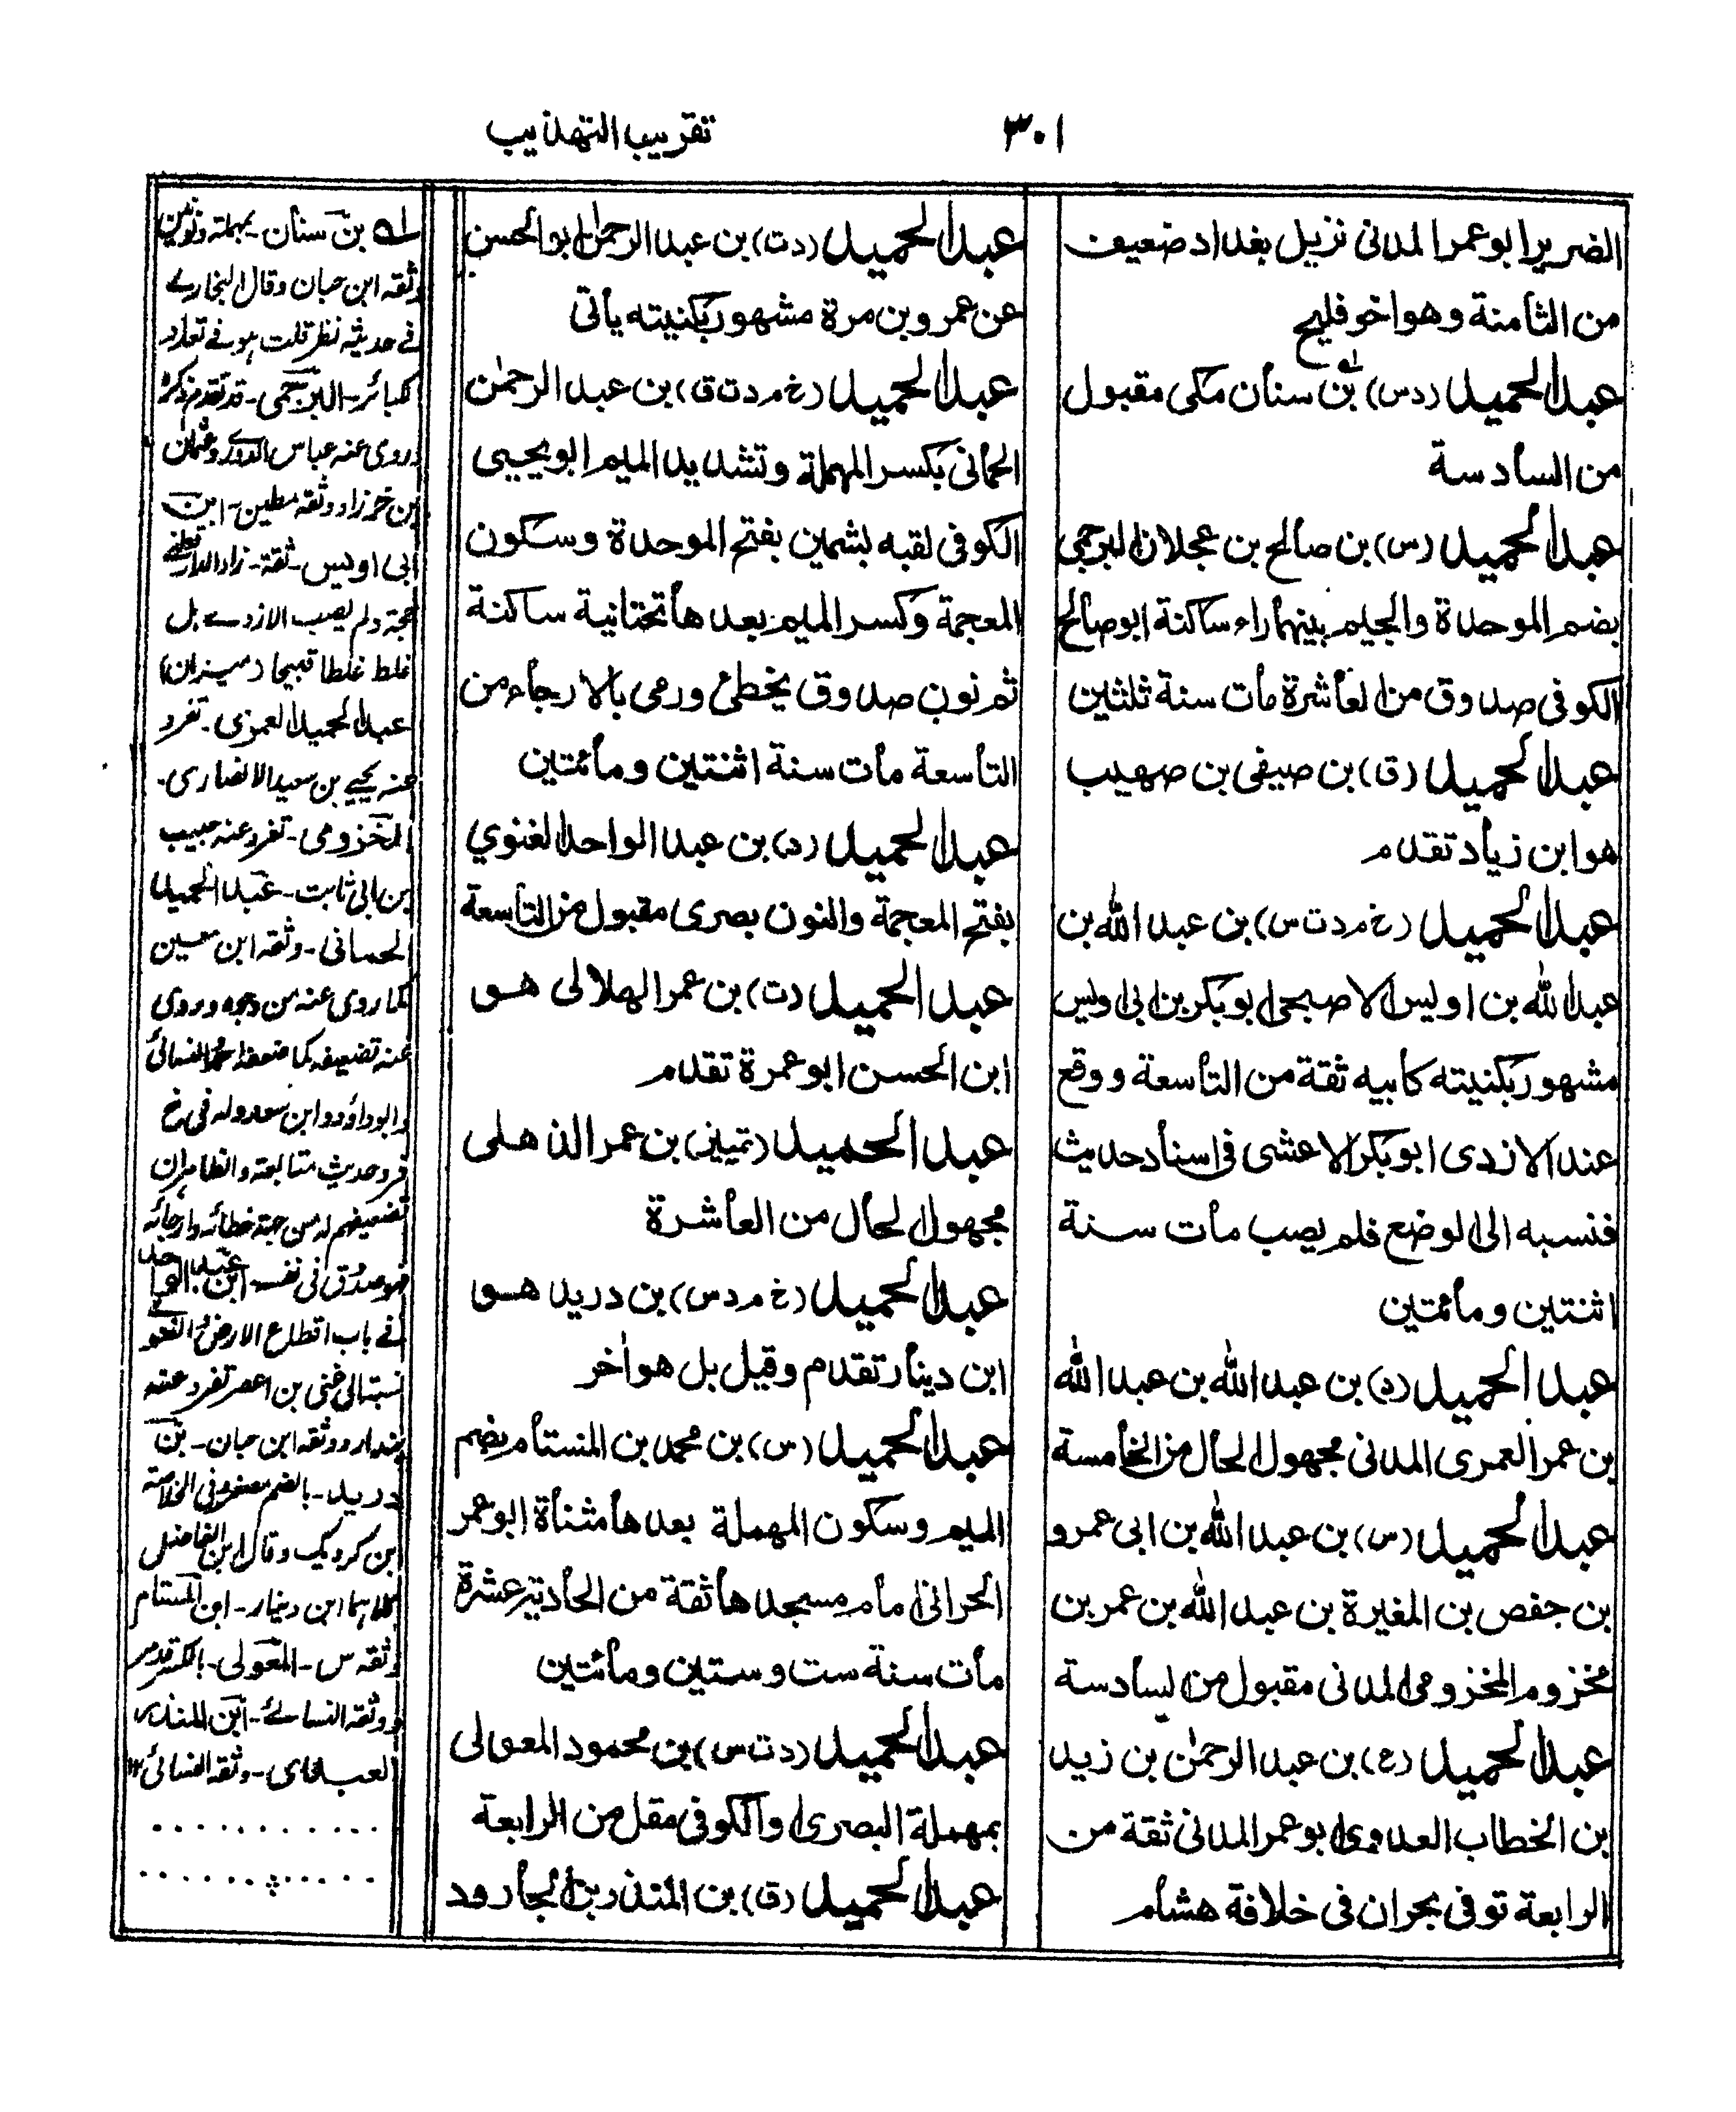 ٣٠١
تقريب التهذيب
الضرير ابو عمر المدنى نزيل بغداد ضعيف
من الثامنة وهو اخو فليح
عبد الحميد (دس) بن سنان مكى مقبول
من السادسة
عبد الحميد (س) بن صالح بن عجلان البرجمي
بضم الموحدة والجيم بينهما راء ساكنة ابو صالح
الكوفى صدوق من العاشرة مات سنة ثلثين
عبد الحميد (ق) بن صيفى بن صهيب
هو ابن زياد تقدم
عبد الحميد (خ م د ت س) بن عبد الله بن
عبد الله بن اويس الاصبحى ابو بكر بن ابى اويس
مشهور بكنيته كابيه ثقة من التاسعة ووقع
عند الازدى ابو بكر الاعشى فى اسناد حديث
فنسبه الى الوضع فلم يصب مات سنة
اثنتين ومائتين
عبد الحميد بن عبد الله بن عبد الله
بن عمر العمرى المدنى مجهول الحال من الخامسة
عبد الحميد (س) بن عبد الله بن ابى عمرو
بن حفص بن المغيرة بن عبد الله بن عمر بن
مخزوم المخزومى المدنى مقبول من السادسة
عبد الحميد (ع) بن عبد الرحمٰن بن زيد
بن الخطاب العدوى ابو عمر المدنى ثقة من
الرابعة توفى بحران فى خلافة هشام
عبد الحميد (د ت) بن عبد الرحمٰن ابو الحسن
عن عمرو بن مرة مشهور بكنيته يأتى
عبد الحميد (خ م د ت ق) بن عبد الرحمٰن
الحمانى بكسر المهملة وتشديد الميم ابو يحيى
الكوفى لقبه بشمين بفتح الموحدة وسكون
المعجمة وكسر الميم بعدها تحتانية ساكنة
ثم نون صدوق يخطئ ورمى بالارجاء من
التاسعة مات سنة اثنتين ومائتين
عبد الحميد (د) بن عبد الواحد الغنوي
بفتح المعجمة والنون بصرى مقبول من التاسعة
عبد الحميد (ت) بن عمر الهلالى هو
ابن الحسن ابو عمرة تقدم
عبد الحميد (تمييز) بن عمر الذهلى
مجهول الحال من العاشرة
عبد الحميد (خ م د س) بن دريد هو
ابن دينار تقدم وقيل بل هو اٰخر
عبد الحميد (س) بن محمد بن المنستام بضم
الميم وسكون المهملة بعدها مثناة ابو عمر
الحرانى امام مسجدها ثقة من الحادية عشرة
مات سنة ست وستين ومائتين
عبد الحميد (د ت س) بن محمود المعولى
بمهملة البصرى او الكوفى مقل من الرابعة
عبد الحميد (ق) بن المنذر بن الجارود
لـه بن سنان - بمهملة ونونين
وثقه ابن حبان وقال البخارے
فے حديثه نظر قلت ہو فے تعداد
الكبائر - البرجمى - قد تقدم ذكره
وروى عنه عباس الدورے وعثمان
بن خرزاد ووثقه مطين - ابن
ابى اويس - ثقة - زاد الدارقطنے
حجة ولم يصب الازدے بل
غلط غلطا قبيحا (ميزان)
عبد الحميد العمرى - تفرد
عنه يحيى بن سعيد الانصارى -
المخزومى - تفرد عنه حبيب
بن ابى ثابت - عبد الحميد
الحمانى - وثقه ابن معين
كما روى عنه من وجه وروى
عنه تضعيفه كما ضعفه احمد والنسائى
وابو داؤد وابن سعد وله فى خ
فرد حديث متابعة والظاهر ان
تضعيفهم له من جهة خطائه وارجائه
فهو صدوق فى نفسه - ابن عبد الواحد
فے باب اقطاع الارض
نسبة الى غنى بن اعصر تفرد عنه
بندار ووثقه ابن حبان - بن
دريد - بالضم مصغرا وفى الخلاصة
ابن كرديد وقال ابن الفاضل
كلاہما ابن دينار - ابن المستام
وثقه س - المعولى - بالكسر قدم
ووثقه النسائے - ابن المنذر
العبدى - وثقه النسائى ١٢